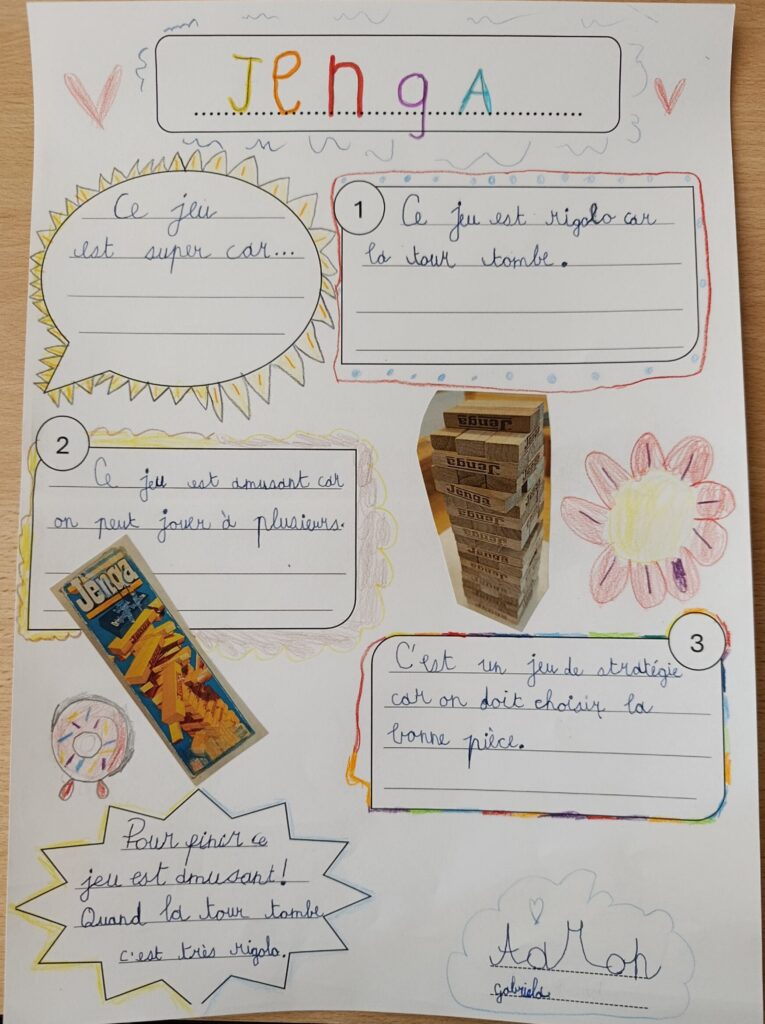 Jenga
Ce jeu
est super car...
1
Ce jeu est rigolo car
la tour tombe.
2
Ce jeu est amusant car
on peut jouer à plusieurs.
Jenga
Jenga
Jenga
Jenga
Jenga
Jenga
Jenga
Jenga
3
C'est un jeu de stratégie
car on doit choisir la
bonne pièce.
Pour finir ce
jeu est amusant!
Quand la tour tombe
c'est très rigolo.
Gabriela